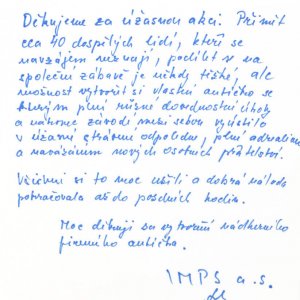 Děkujeme za úžasnou akci. Přimět
cca 40 dospělých lidí, kteří se
navzájem neznají, podílet se na
společné zábavě je někdy těžké, ale
možnost vytvořit si vlastní autíčko se
kterým plní různé dovednostní úkoly
a nakonec závodí mezi sebou vyústilo
v úžasně strávené odpoledne, plné adrenalinu
a navázáním nových osobních přátelství.
Všichni si to moc užili a dobrá nálada
pokračovala až do pozdních hodin.
Moc děkuji za vytvoření nádherného
firemního autíčka.
IMPS a.s.